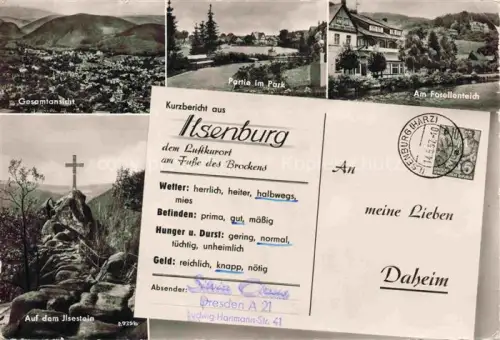 Gesamtansicht
Partie im Park
Am Forellenteich
Kurzbericht aus
Ilsenburg
dem Luftkurort
am Fuße des Brockens
Wetter: herrlich, heiter, halbwegs,
mies
Befinden: prima, gut, mäßig
Hunger u. Durst: gering, normal,
tüchtig, unheimlich
Geld: reichlich, knapp, nötig
Absender:
Dresden A 21
Ludwig-Hartmann-Str. 41
ILSENBURG (HARZ)
An
meine Lieben
Daheim
Auf dem Ilsestein